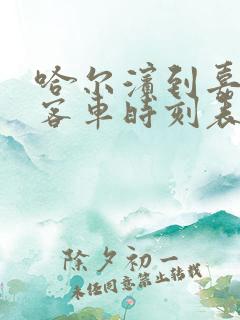 哈尔滨到嘉
客车时刻表
除夕初一
未经同意禁止转载